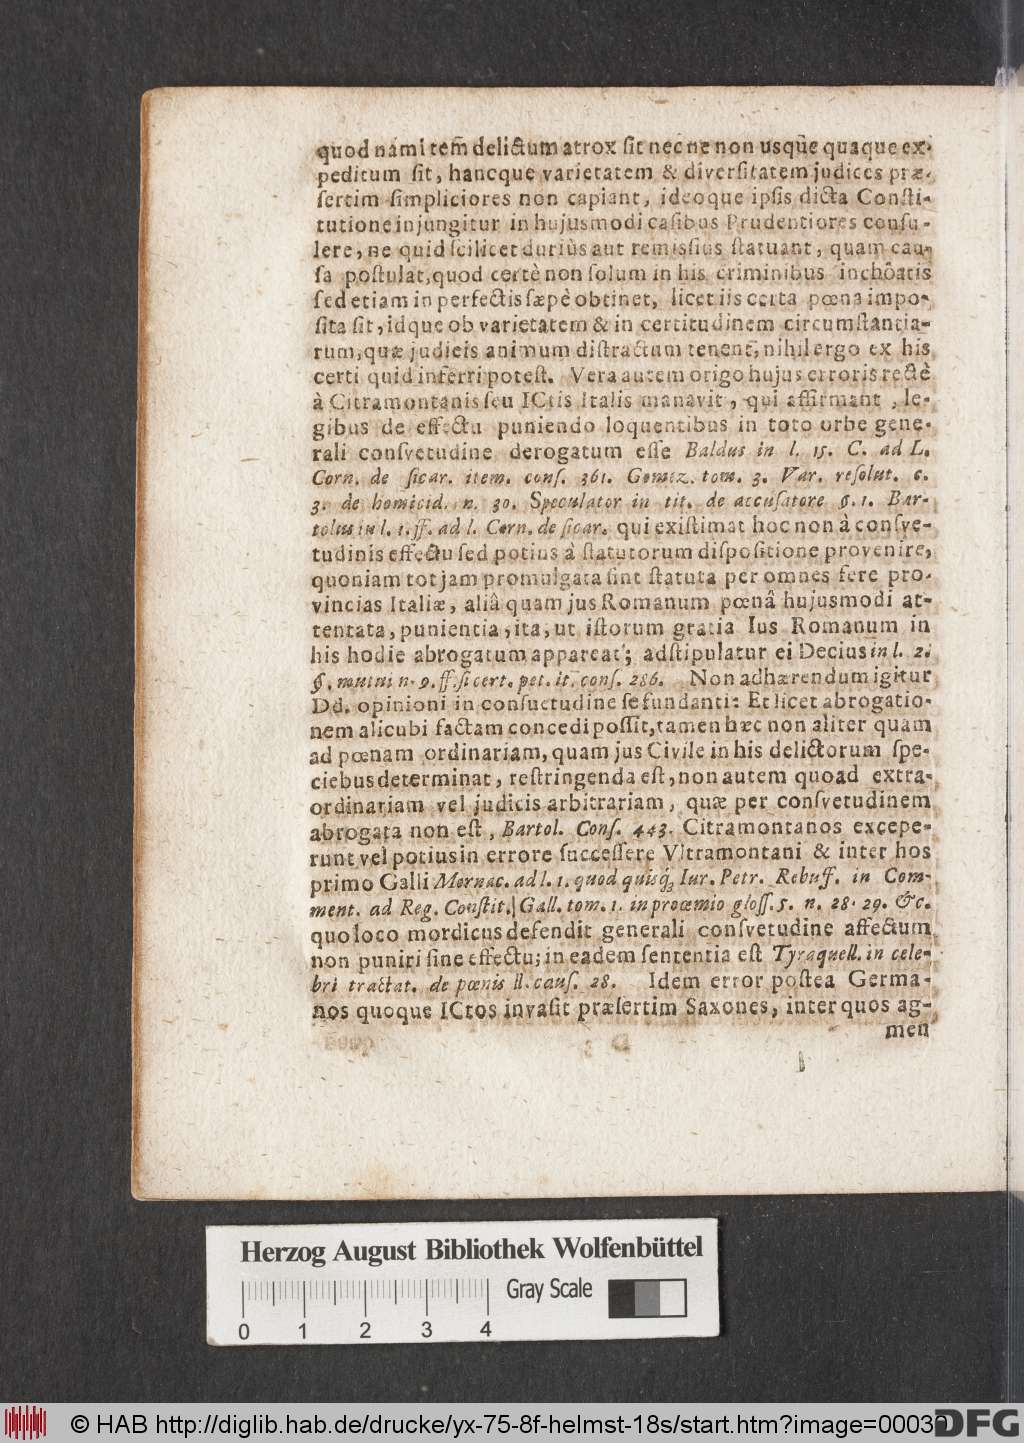 quod nam item̃ delictum atrox sit nec ne non usq̃ue quaque ex-
peditum sit, hancque varietatem & diversitatem judices præ-
sertim simpliciores non capiant, ideoque ipsis dicta Consti-
tutione injungitur in hujusmodi casibus Prudentiores consu-
lere, ne quid scilicet duriùs aut remissius statuant, quam cau-
sa postulat, quod certè non solum in his criminibus inchôatis
sed etiam in perfectis sæpè obtinet, licet iis certa pœna impo-
sita sit, idque ob varietatem & in certitudinem circumstantia-
rum, quæ judicis animum distractum tenent, nihil ergo ex his
certi quid inferri potest. Vera autem origo hujus erroris rectè
à Citramontanis seu ICtis Italis manavit, qui affirmant, le-
gibus de effectu puniendo loquentibus in toto orbe gene-
rali consvetudine derogatum esse Baldus in l. 15. C. ad L.
Corn. de sicar. item. cons. 361. Gomez. tom. 3. Var. resolut. c.
3. de homicid. n. 30. Speculator in tit. de accusatore §. 1. Bar-
tolus in l. 1. ff. ad l. Corn. de sicar. qui existimat hoc non à consve-
tudinis effectu sed potius â statutorum dispositione provenire,
quoniam tot jam promulgata sint statuta per omnes fere pro-
vincias Italiæ, aliâ quam jus Romanum pœnâ hujusmodi at-
tentata, punientia, ita, ut istorum gratia Ius Romanum in
his hodie abrogatum appareat; adstipulatur ei Decius in l. 2.
§. mutui n. 9. ff. si cert. pet. it. cons. 286. Non adhærendum igitur
Dd. opinioni in consuetudine se fundanti: Et licet abrogatio-
nem alicubi factam concedi possit, tamen hæc non aliter quam
ad pœnam ordinariam, quam jus Civile in his delictorum spe-
ciebus determinat, restringenda est, non autem quoad extra-
ordinariam vel judicis arbitrariam, quæ per consvetudinem
abrogata non est, Bartol. Cons. 443. Citramontanos excepe-
runt vel potius in errore successere Vltramontani & inter hos
primo Galli Mornac. ad l. 1. quod quisq; Iur. Petr. Rebuff. in Com-
ment. ad Reg. Constit. Gall. tom. 1. in proœmio gloss. 5. n. 28. 29. &c.
quo loco mordicus defendit generali consvetudine affectum
non puniri sine effectu; in eadem sententia est Tyraquell. in cele-
bri tractat. de pœnis ll. caus. 28. Idem error postea Germa-
nos quoque ICtos invasit præsertim Saxones, inter quos ag-
men
Herzog August Bibliothek Wolfenbüttel
Gray Scale
0 1 2 3 4
© HAB http://diglib.hab.de/drucke/yx-75-8f-helmst-18s/start.htm?image=00030
DFG